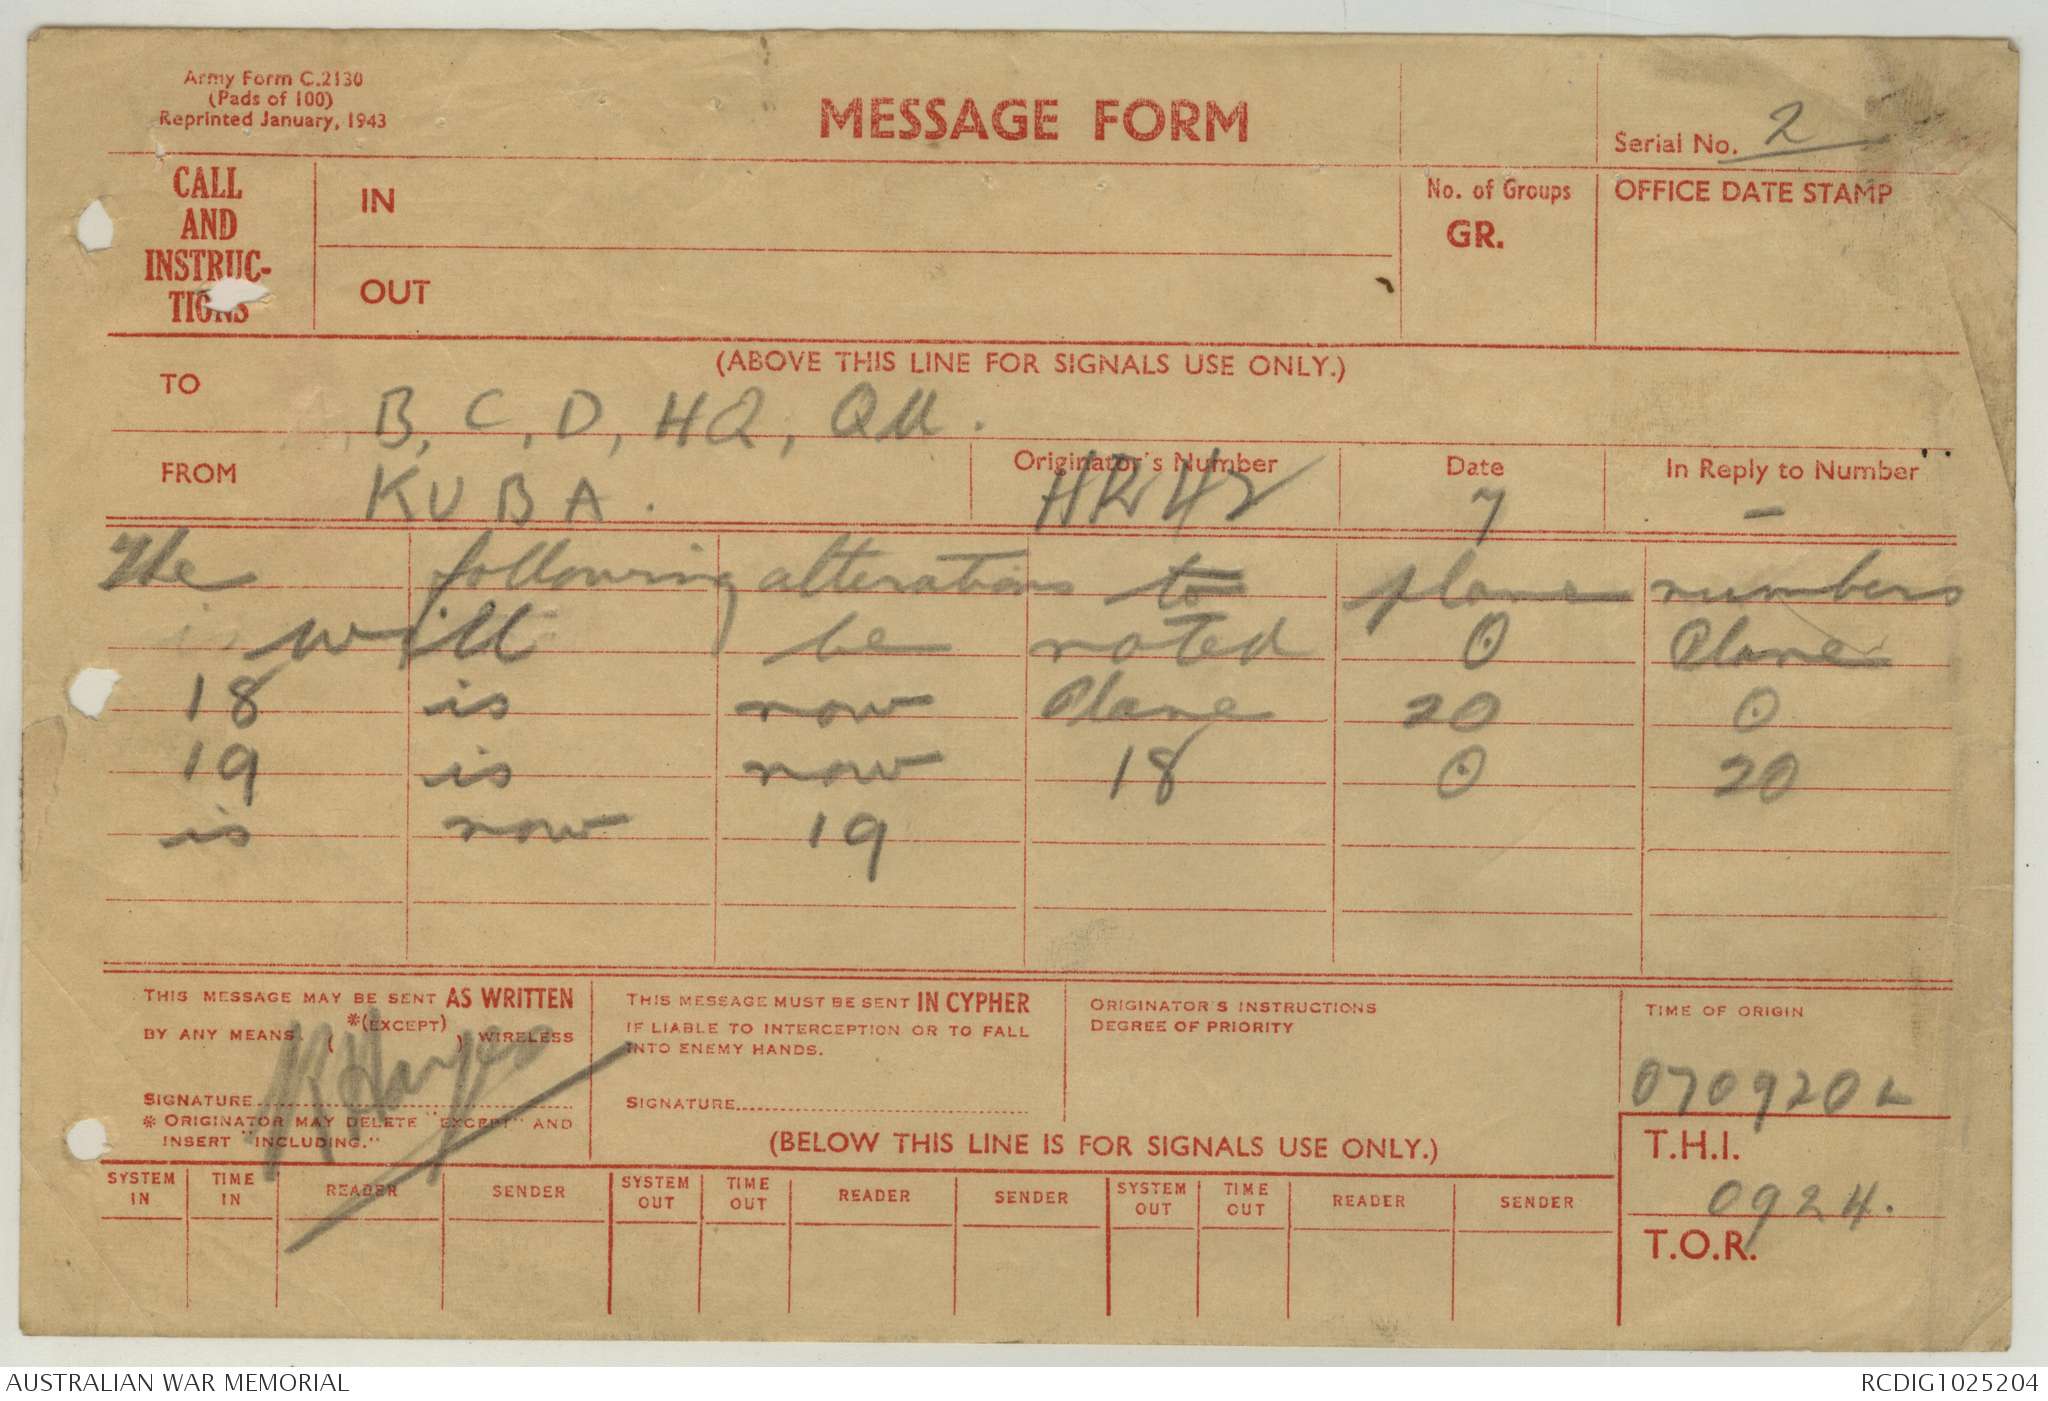 Army Form C.2130
(Pads of 100)
Reprinted January, 1943
MESSAGE FORM
Serial No. 2
CALL AND INSTRUC-TIONS
IN
OUT
No. of Groups
GR.
OFFICE DATE STAMP
(ABOVE THIS LINE FOR SIGNALS USE ONLY.)
TO B, C, D, HQ, QM.
FROM KUBA.
Originator's Number
Date 7
In Reply to Number –
The following alterations to plane numbers
will be noted ⊙ Plane
18 is now Plane 20 ⊙
19 is now 18 ⊙ 20
is now 19
THIS MESSAGE MAY BE SENT AS WRITTEN
BY ANY MEANS *(EXCEPT) ( ) WIRELESS
SIGNATURE
* ORIGINATOR MAY DELETE "EXCEPT" AND
INSERT "INCLUDING."
THIS MESSAGE MUST BE SENT IN CYPHER
IF LIABLE TO INTERCEPTION OR TO FALL
INTO ENEMY HANDS.
SIGNATURE
ORIGINATOR'S INSTRUCTIONS
DEGREE OF PRIORITY
TIME OF ORIGIN
070920L
(BELOW THIS LINE IS FOR SIGNALS USE ONLY.)
T.H.I.
0924.
T.O.R.
SYSTEM IN TIME IN READER SENDER SYSTEM OUT TIME OUT READER SENDER SYSTEM OUT TIME OUT READER SENDER
AUSTRALIAN WAR MEMORIAL
RCDIG1025204